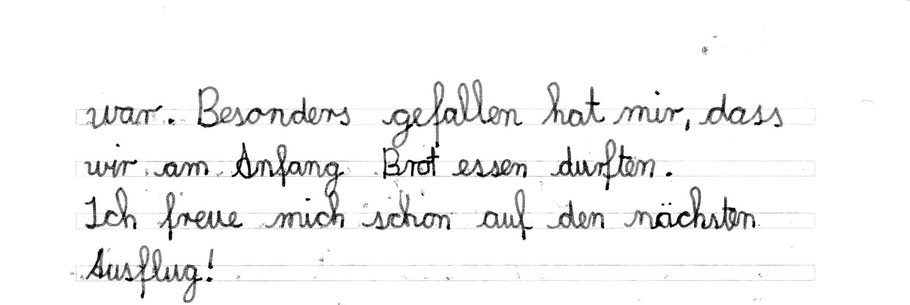 war. Besonders gefallen hat mir, dass
wir am Anfang Brot essen durften.
Ich freue mich schon auf den nächsten
Ausflug!